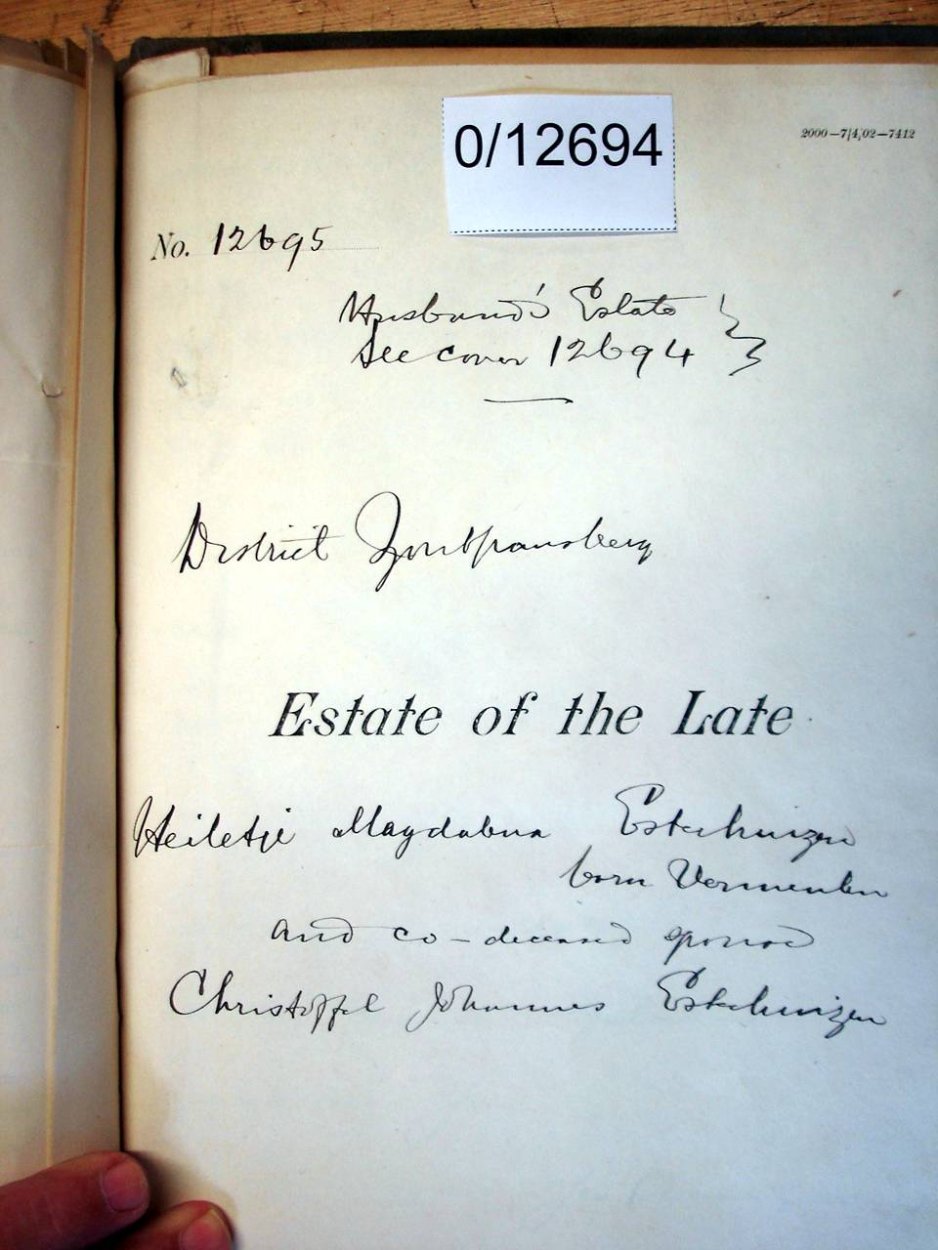 0/12694
2000–7/4/02–7412
No. 12695
Husband's Estate
See cover 12694
District Zoutpansberg
Estate of the Late
Heiletje Magdalena Esterhuizen
born Vermeulen
and co-deceased spouse
Christoffel Johannes Esterhuizen